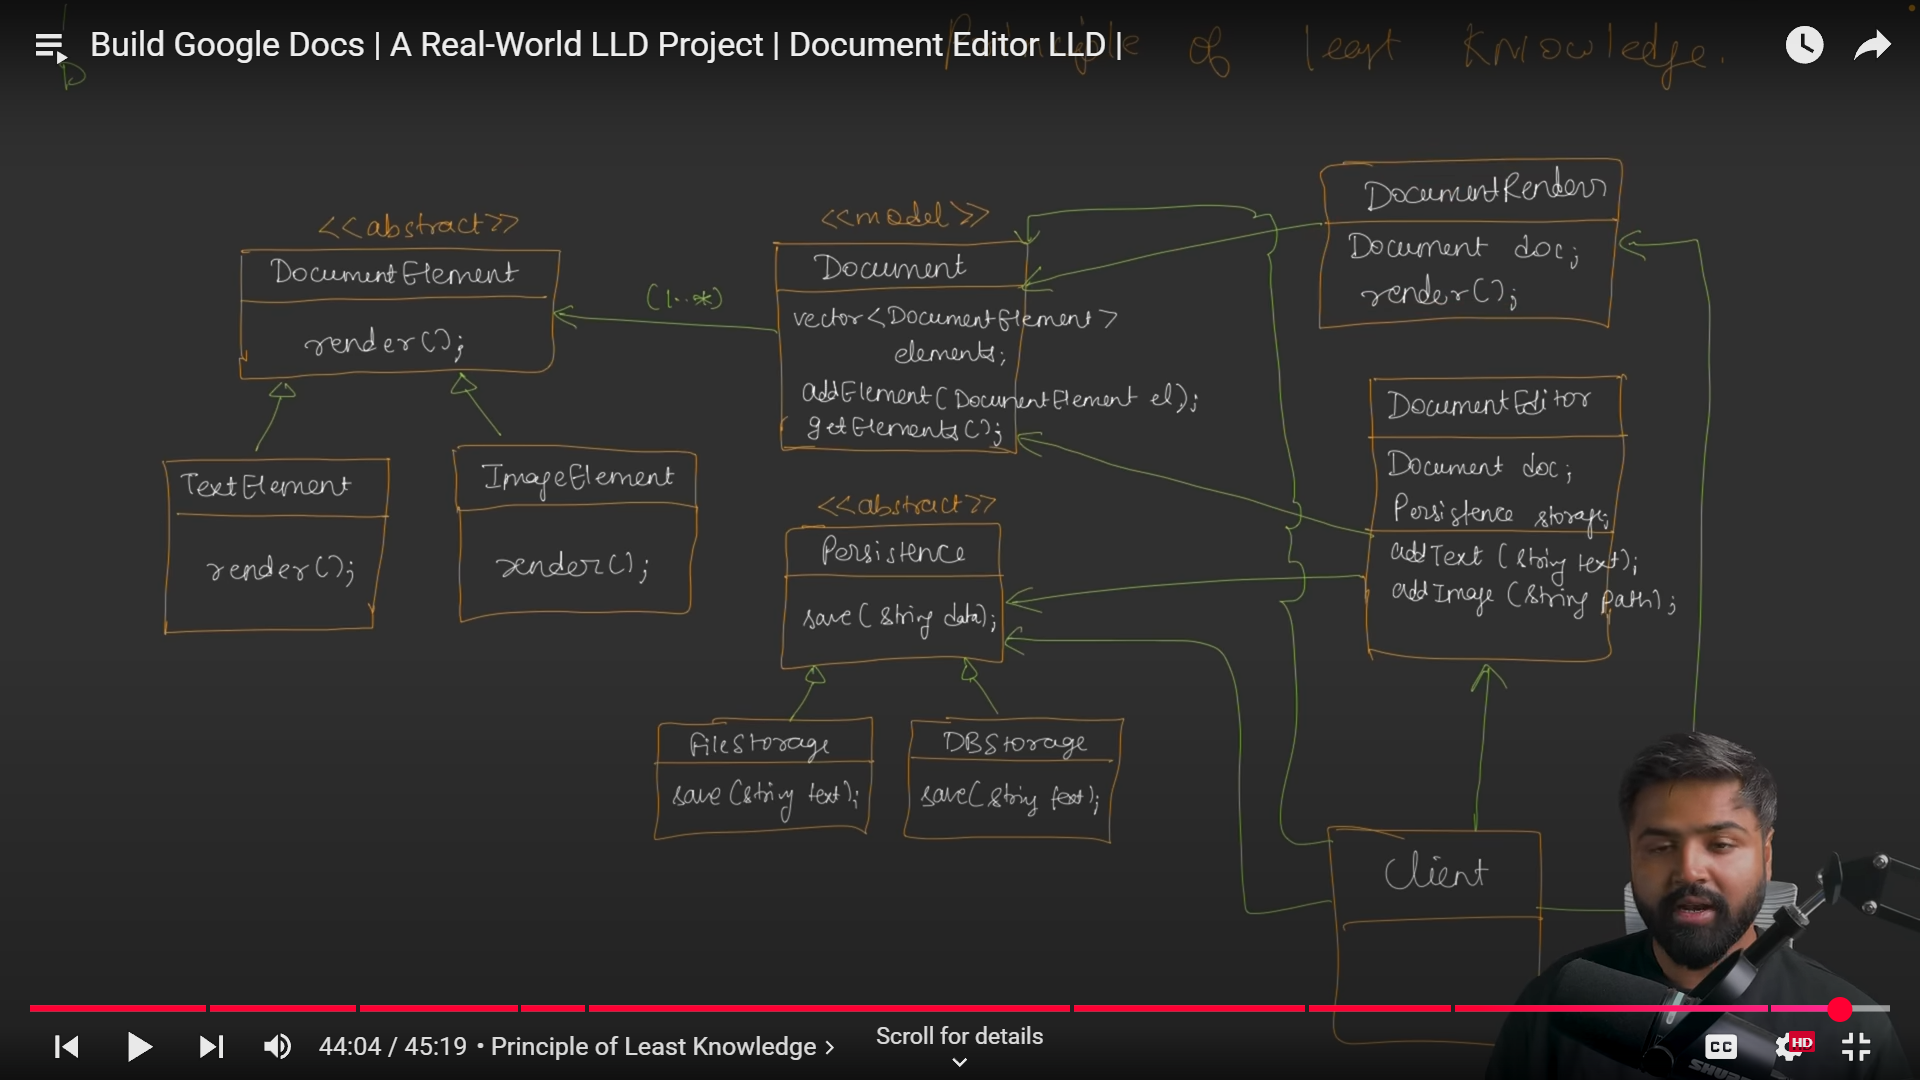 Build Google Docs | A Real-World LLD Project | Document Editor LLD |
Principle of least Knowledge.
D
<<abstract>>
DocumentElement
render();
TextElement
render();
ImageElement
render();
(1..*)
<<model>>
Document
vector<DocumentElement>
elements;
addElement(DocumentElement el);
getElements();
<<abstract>>
Persistence
save(String data);
FileStorage
save(String text);
DBStorage
save(String text);
DocumentRender
Document doc;
render();
DocumentEditor
Document doc;
Persistence storage;
addText (String text);
addImage (String path);
Client
44:04 / 45:19 • Principle of Least Knowledge >
Scroll for details
CC
HD
SHURE